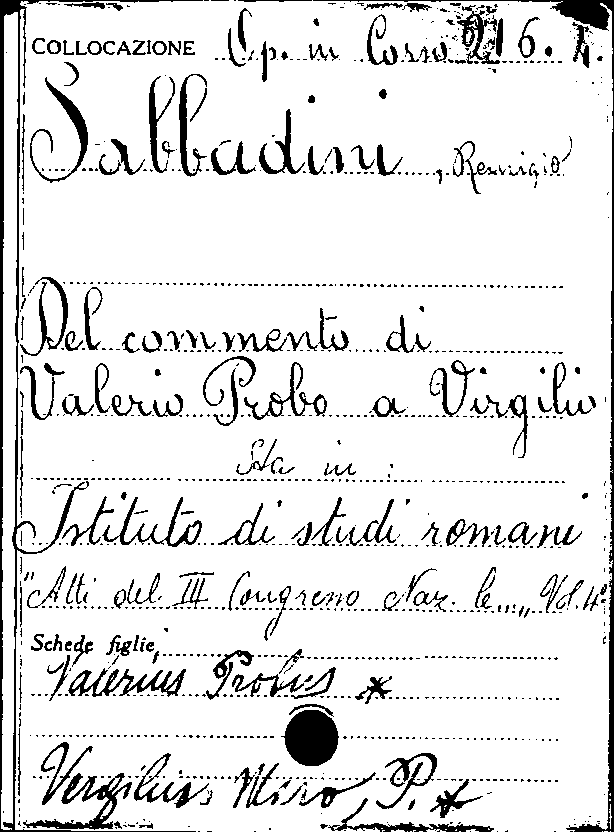 COLLOCAZIONE Op. in Corso 216. 4.
Sabbadini, Remigio
Del commento di
Valerio Probo a Virgilio
Sta in :
Istituto di studi romani
"Atti del III Congresso Naz. le...," Vol. 4°
Schede figlie
Valerius Probus *
Vergilius Miro, P. *